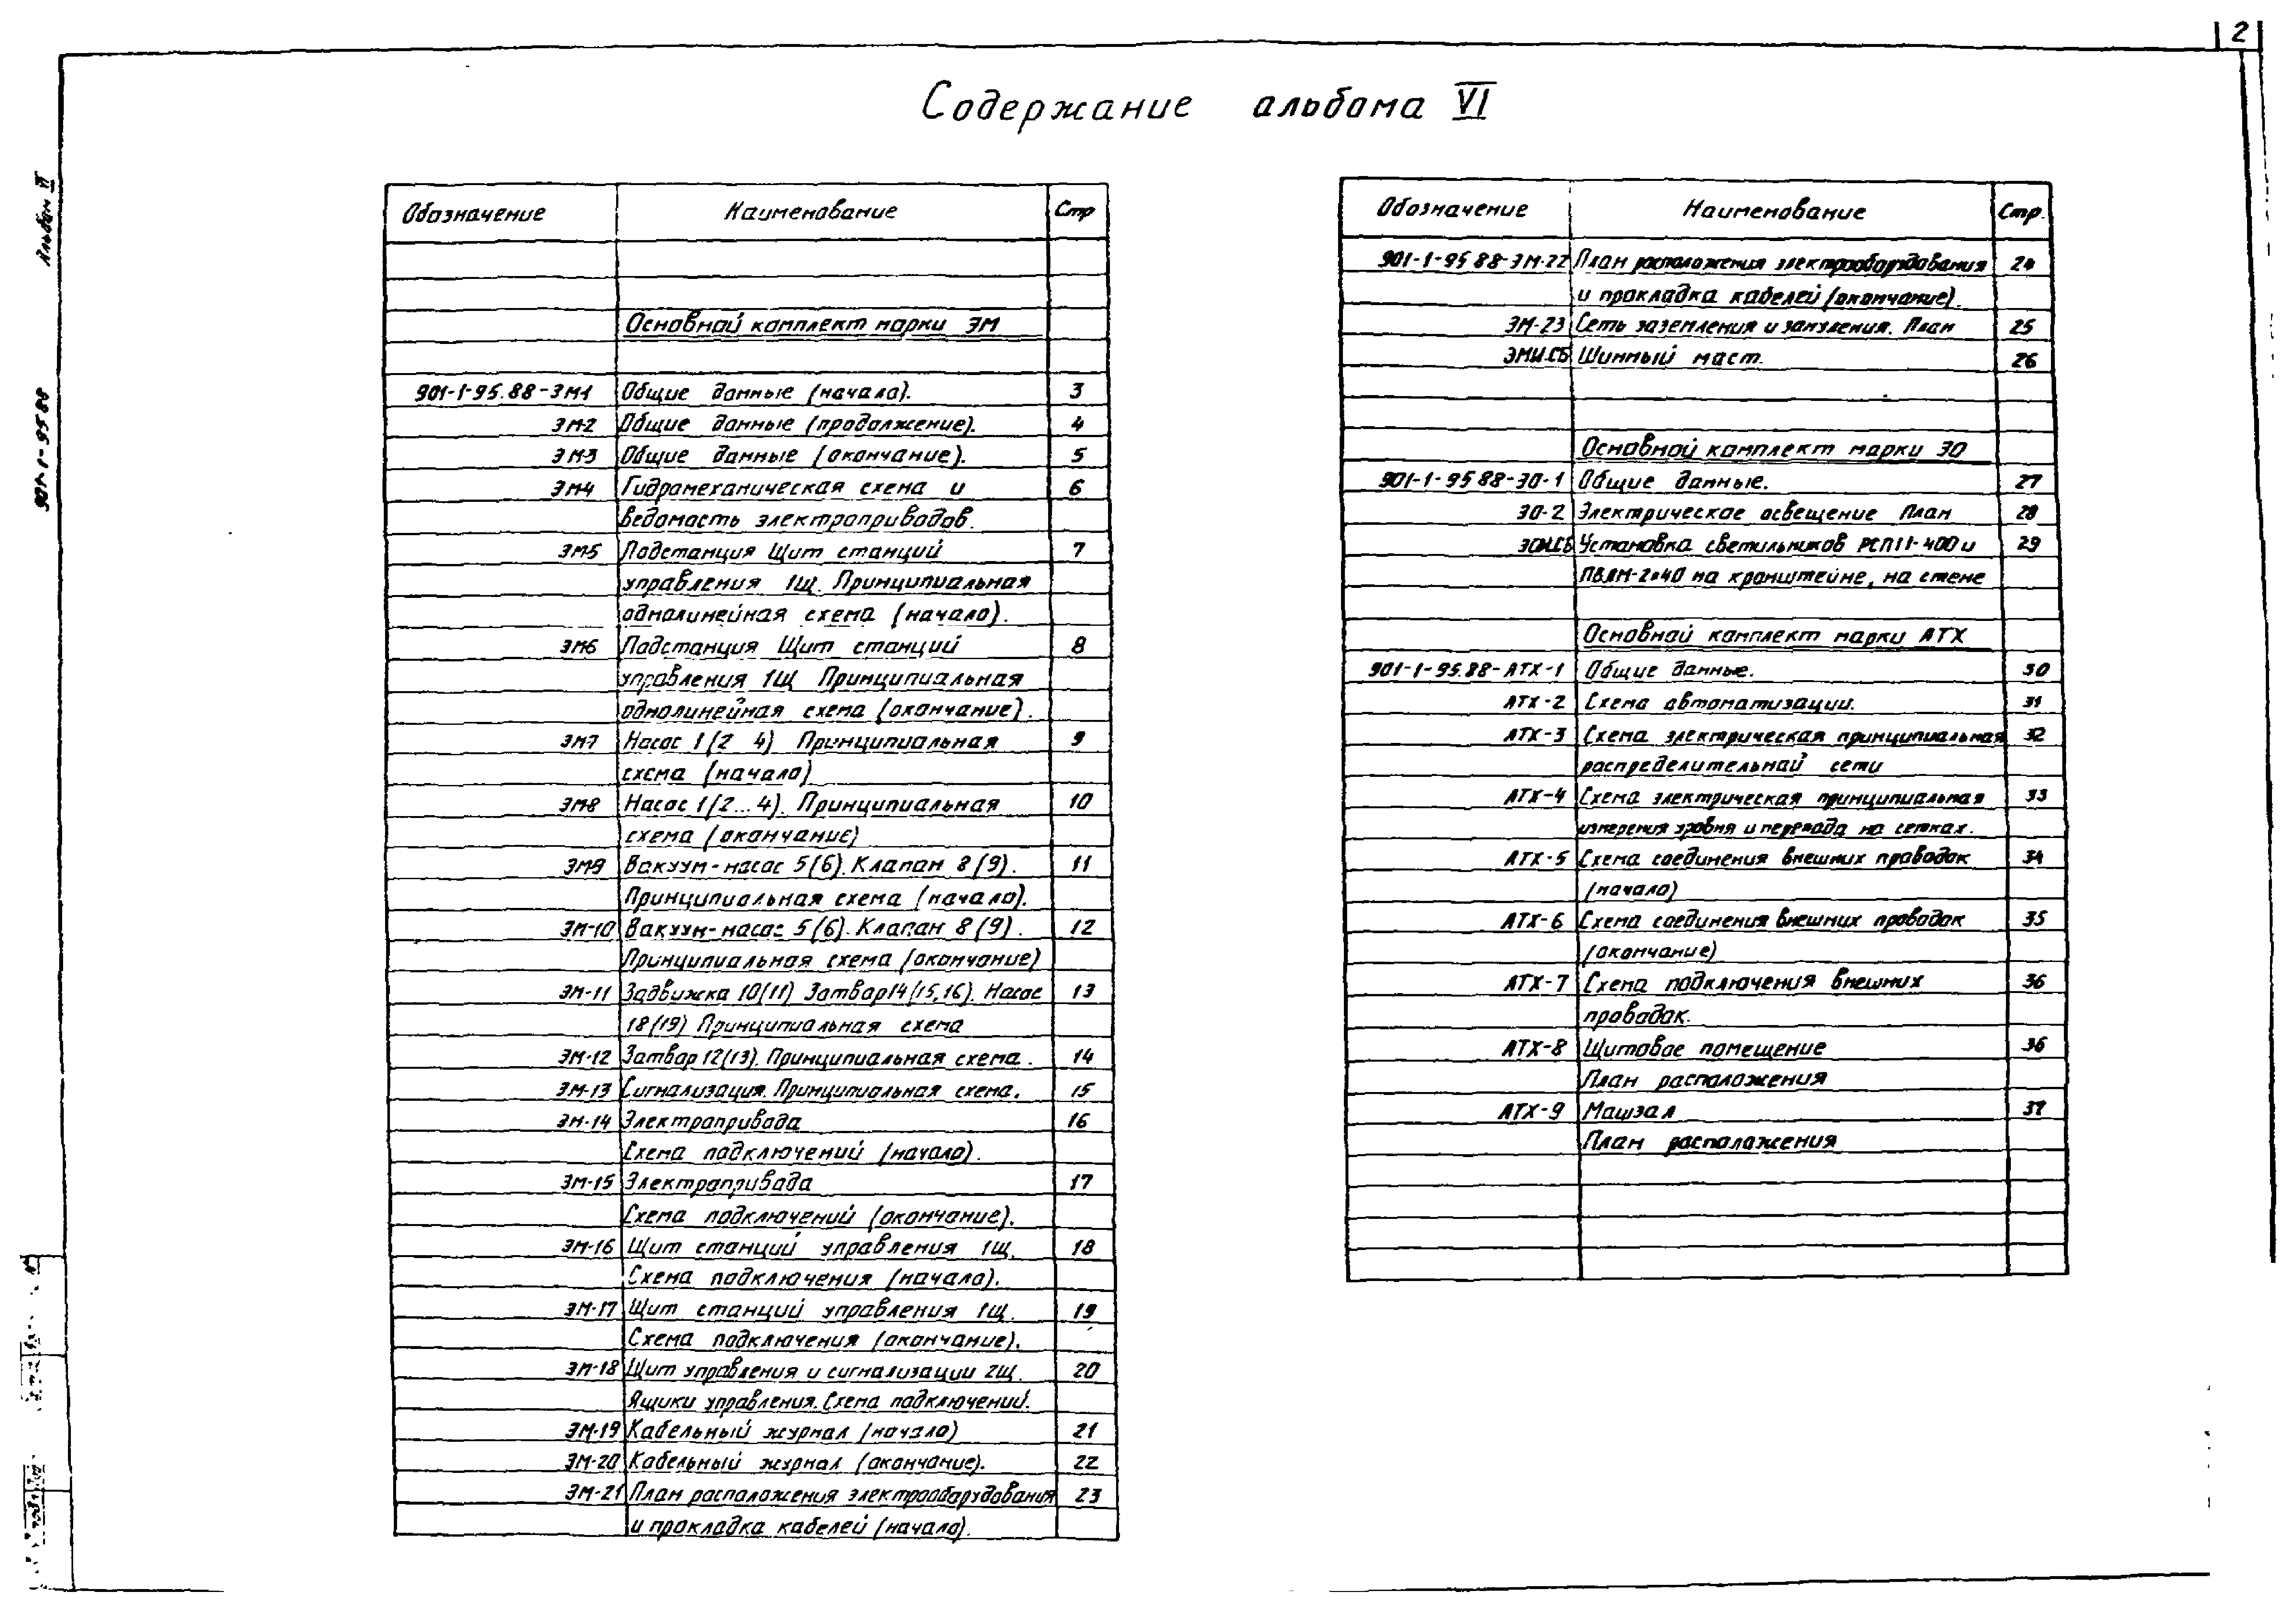 2
Содержание альбома VI
Альбом VI
901-1-95.88
Обозначение Наименование Стр
Основной комплект марки ЭМ
901-1-95.88-ЭМ1 Общие данные (начало). 3
ЭМ2 Общие данные (продолжение). 4
ЭМ3 Общие данные (окончание). 5
ЭМ4 Гидромеханическая схема и 6
ведомость электроприводов.
ЭМ5 Подстанция Щит станций 7
управления 1Щ. Принципиальная
однолинейная схема (начало).
ЭМ6 Подстанция Щит станций 8
управления 1Щ Принципиальная
однолинейная схема (окончание).
ЭМ7 Насос 1(2 4) Принципиальная 9
схема (начало)
ЭМ8 Насос 1(2...4). Принципиальная 10
схема (окончание)
ЭМ9 Вакуум-насос 5(6). Клапан 8(9). 11
Принципиальная схема (начало).
ЭМ-10 Вакуум-насос 5(6). Клапан 8(9). 12
Принципиальная схема (окончание)
ЭМ-11 Задвижка 10(11) Затвор14(15,16). Насос 13
18(19) Принципиальная схема
ЭМ-12 Затвор 12(13). Принципиальная схема. 14
ЭМ-13 Сигнализация. Принципиальная схема. 15
ЭМ-14 Электропривода 16
Схема подключений (начало).
ЭМ-15 Электропривода 17
Схема подключений (окончание).
ЭМ-16 Щит станций управления 1Щ. 18
Схема подключения (начало).
ЭМ-17 Щит станций управления 1Щ. 19
Схема подключения (окончание).
ЭМ-18 Щит управления и сигнализации 2Щ. 20
Ящики управления. Схема подключений.
ЭМ-19 Кабельный журнал (начало) 21
ЭМ-20 Кабельный журнал (окончание). 22
ЭМ-21 План расположения электрооборудования 23
и прокладка кабелей (начало).
Обозначение Наименование Стр.
901-1-95 88-ЭМ-22 План расположения электрооборудования 24
и прокладка кабелей (окончание).
ЭМ-23 Сеть заземления и зануления. План 25
ЭМИ.СБ Шинный мост. 26
Основной комплект марки ЭО
901-1-95 88-ЭО-1 Общие данные. 27
ЭО-2 Электрическое освещение План 28
ЭОИ.СБ Установка светильников РСП11-400 и 29
ПВЛМ-2×40 на кронштейне, на стене
Основной комплект марки АТХ
901-1-95.88-АТХ-1 Общие данные. 30
АТХ-2 Схема автоматизации. 31
АТХ-3 Схема электрическая принципиальная 32
распределительной сети
АТХ-4 Схема электрическая принципиальная 33
измерения уровня и перепада на сетках.
АТХ-5 Схема соединения внешних проводок 34
(начало)
АТХ-6 Схема соединения внешних проводок 35
(окончание)
АТХ-7 Схема подключения внешних 36
проводок.
АТХ-8 Щитовое помещение 36
План расположения
АТХ-9 Машзал 37
План расположения